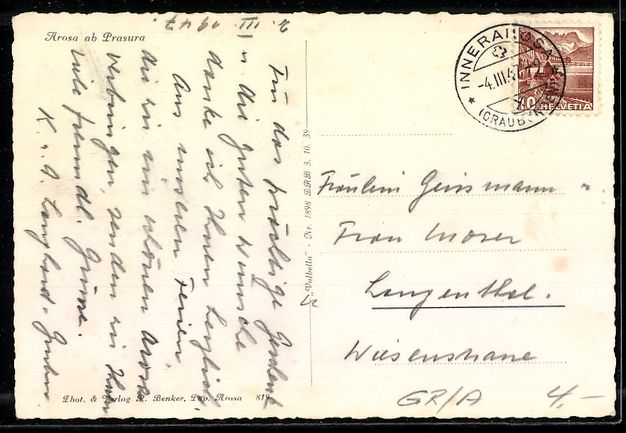 Arosa ab Prasura
2. III. 1947.
Für das prächtige Geschenk
u. die guten Wünsche
danke ich Ihnen herzlich.
Aus unseren Ferien
die wir im schönen Arosa
verbringen, senden wir Ihnen
viele freundl. Grüsse.
K. u. A.
Phot. & Verlag E. Benker, Pap. Arosa 819
"Valbella" - Nr. 1898 B.R.B. 3. 10. 39
INNERAROSA
-4.III.47.
(GRAUBÜNDEN)
10 HELVETIA
Fräulein Geissmann u.
Frau Moser
Langenthal.
Wiesenstrasse
GR/A 4,-